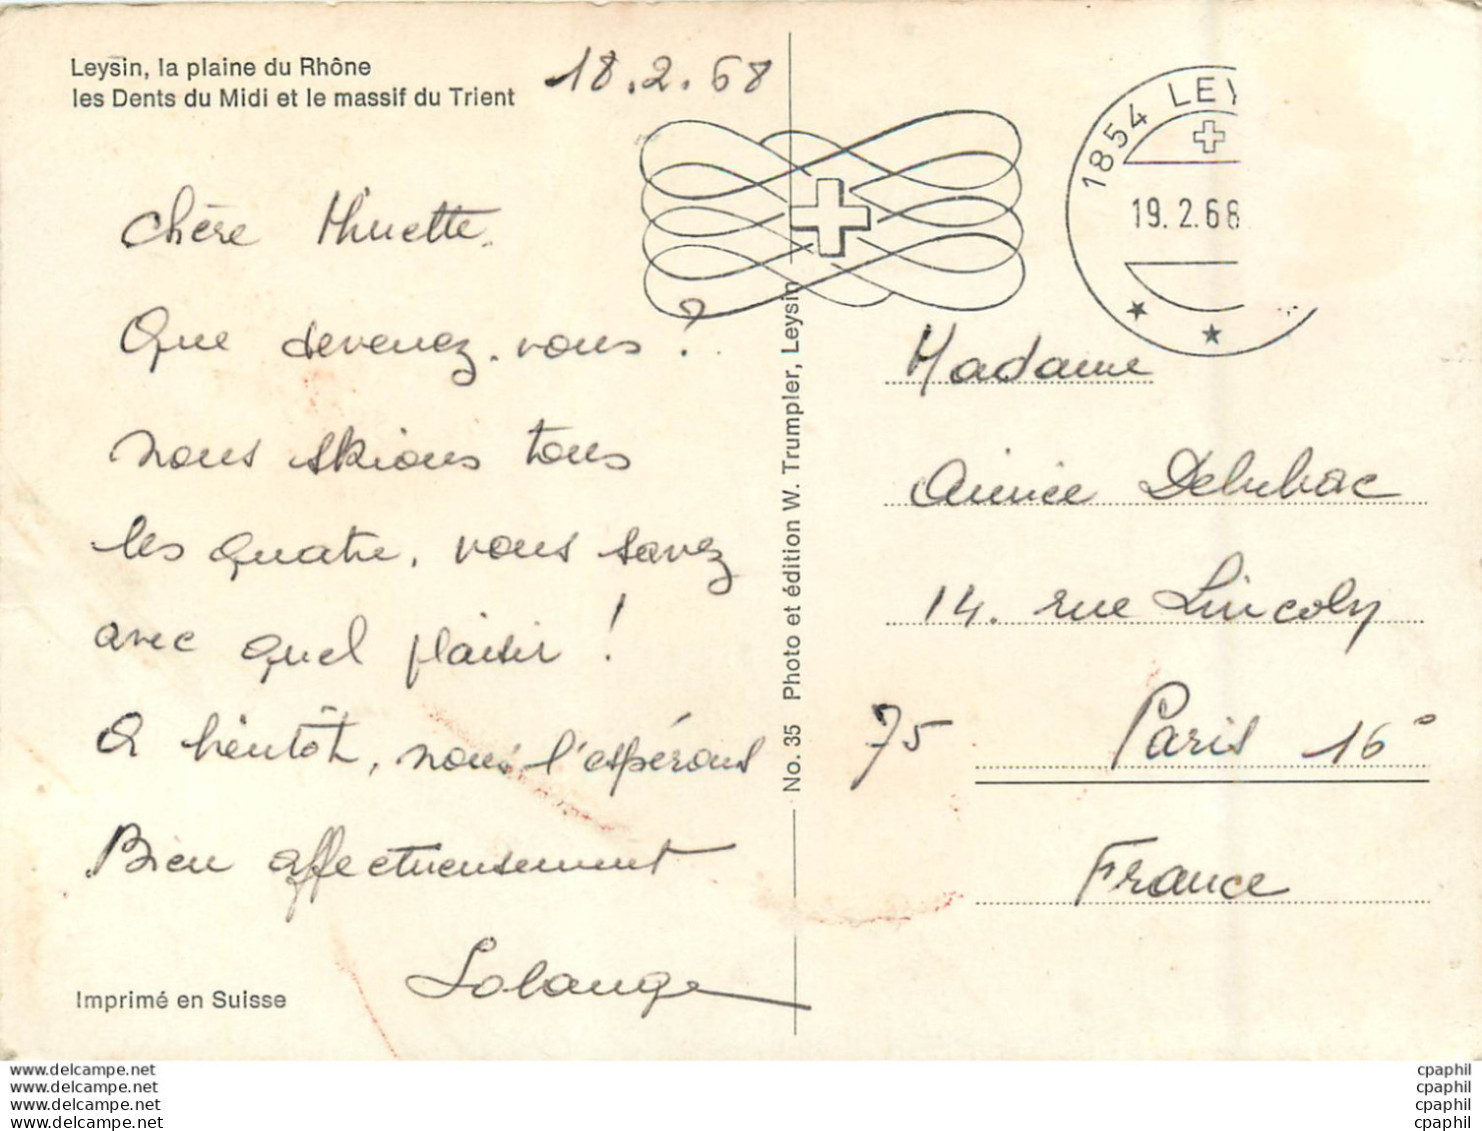 Leysin, la plaine du Rhône
les Dents du Midi et le massif du Trient
18.2.68
1854 LEY
19.2.68
Chère
Que devenez-vous ?
nous skions tous
les quatre, vous savez
avec quel plaisir !
A bientôt, nous l'espérons
Bien affectueusement
Solange
Imprimé en Suisse
No. 35 Photo et édition W. Trumpler, Leysin
Madame
Aimée Delubac
14. rue Lincoln
75 Paris 16e
France
www.delcampe.net
www.delcampe.net
www.delcampe.net
www.delcampe.net
cpaphil
cpaphil
cpaphil
cpaphil